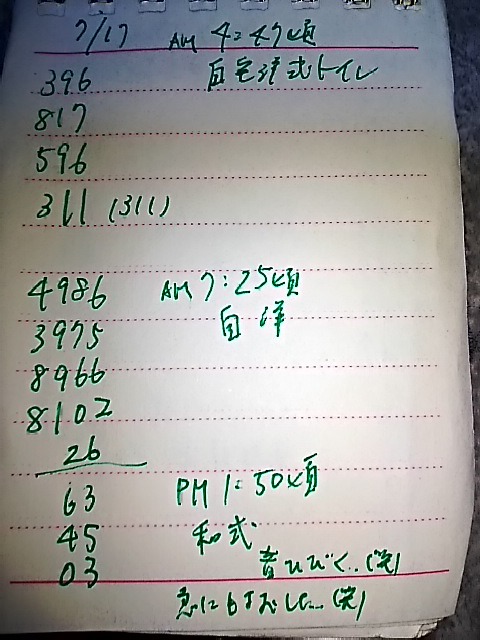 7/17 AM 4:47頃
396 自宅洋式トイレ
817
596
311 (311)
4986 AM 7:25頃
3975 自洋
8966
8102
26
63 PM 1:50頃
45 和式
03 音ひびく..(笑)
急にもよおした...(笑)